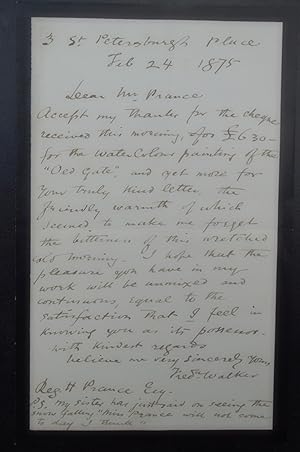 3 St Petersburgh Place
Feb 24 1875
Dear Mr Prance
Accept my thanks for the cheque
received this morning, for £630-
for the Watercolour painting of the
"Old Gate". and yet more for
your truly kind letter, the
friendly warmth of which
seemed to make me forget
the bitterness of this wretched
old morning. I hope that the
pleasure you have in my
work will be unmixed and
continuous, equal to the
satisfaction that I feel in
knowing you as its possessor.
with kindest regards
believe me very sincerely yours
Fredk Walker
Regd H Prance Esq.
P.S. My sister has just said on seeing the
snow falling "Miss Prance will not come
to day I think"